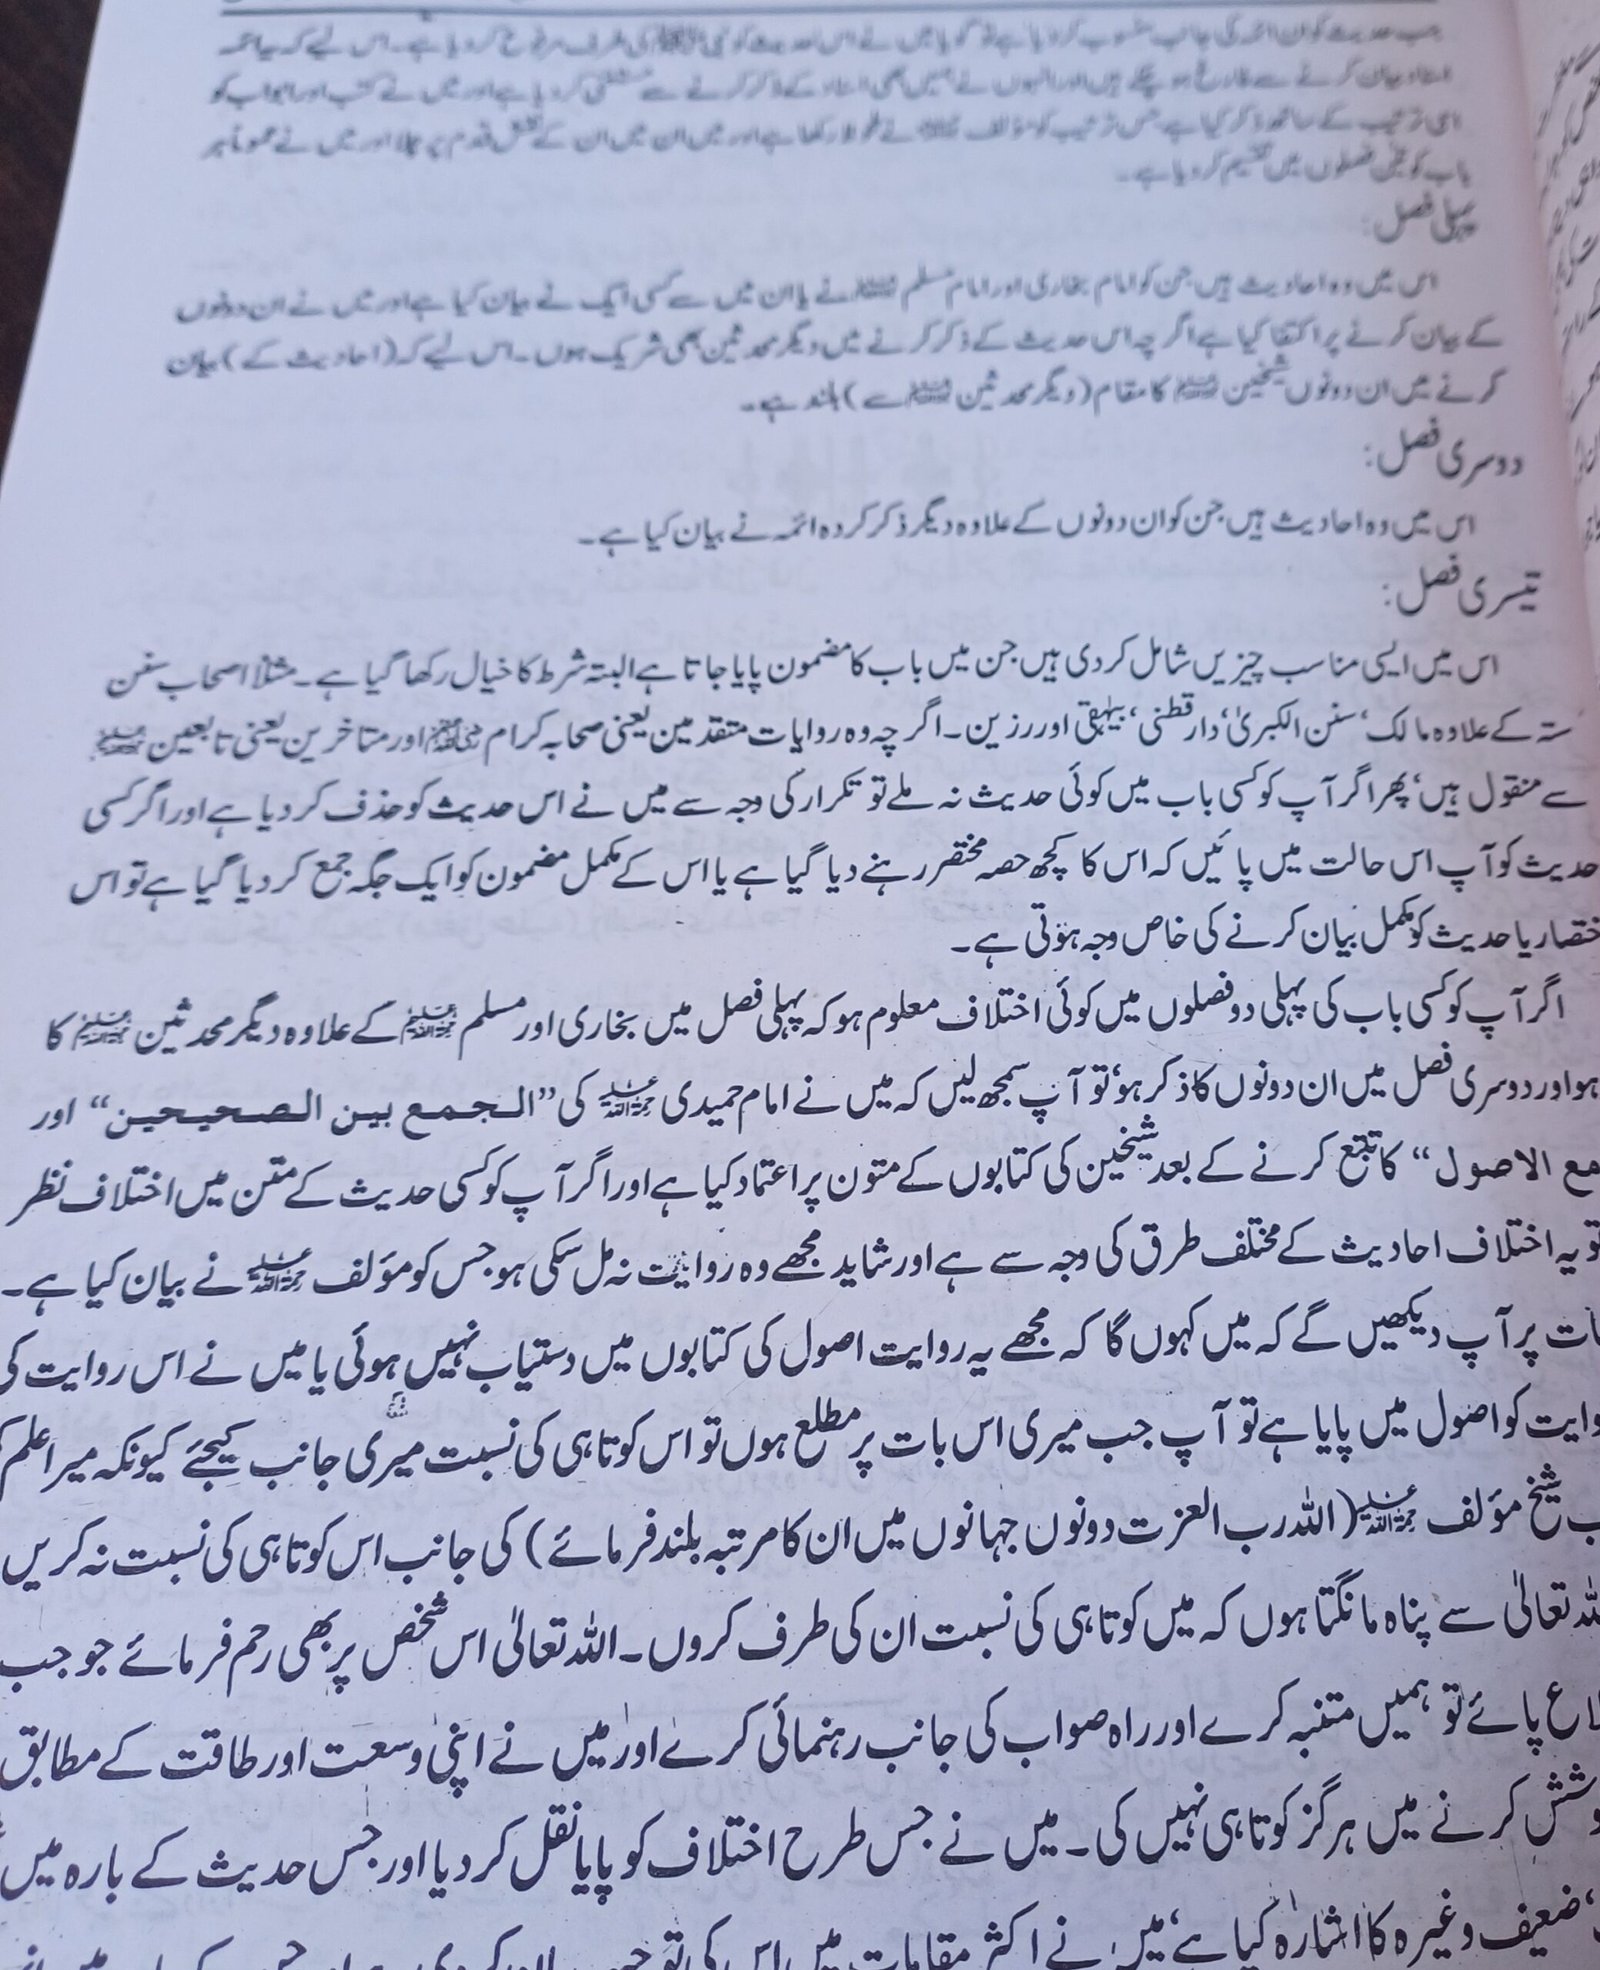 جب حدیث کو ان ائمہ کی جانب منسوب کر دیا ہے تو گویا میں نے اس حدیث کو نبی ﷺ کی طرف مرفوع کر دیا ہے۔ اس لیے کہ یہ ائمہ
اسناد بیان کرنے سے فارغ ہو چکے ہیں اور انہوں نے ہمیں بھی اسناد کے ذکر کرنے سے مستغنی کر دیا ہے اور میں نے کتب اور ابواب کو
اسی ترتیب کے ساتھ ذکر کیا ہے جس ترتیب کو مؤلف نے ملحوظ رکھا ہے اور میں ان میں ان کے نقش قدم پر چلا اور میں نے عموماً ہر
باب کو تین فصلوں میں تقسیم کر دیا ہے۔
پہلی فصل:
اس میں وہ احادیث ہیں جن کو امام بخاری اور امام مسلم نے یا ان میں سے کسی ایک نے بیان کیا ہے اور میں نے ان دونوں
کے بیان کرنے پر اکتفا کیا ہے اگرچہ اس حدیث کے ذکر کرنے میں دیگر محدثین بھی شریک ہوں۔ اس لیے کہ (احادیث کے) بیان
کرنے میں ان دونوں شیخین کا مقام (دیگر محدثین سے) بلند ہے۔
دوسری فصل:
اس میں وہ احادیث ہیں جن کو ان دونوں کے علاوہ دیگر ذکر کردہ ائمہ نے بیان کیا ہے۔
تیسری فصل:
اس میں ایسی مناسب چیزیں شامل کر دی ہیں جن میں باب کا مضمون پایا جاتا ہے البتہ شرط کا خیال رکھا گیا ہے۔ مثلاً اصحاب سنن
ستہ کے علاوہ مالک‘ سنن الکبریٰ‘ دارقطنی‘ بیہقی اور رزین۔ اگرچہ وہ روایات متقدمین یعنی صحابہ کرام رضی اللہ عنہم اور متاخرین یعنی تابعین
سے منقول ہیں‘ پھر اگر آپ کو کسی باب میں کوئی حدیث نہ ملے تو تکرار کی وجہ سے میں نے اس حدیث کو حذف کر دیا ہے اور اگر کسی
حدیث کو آپ اس حالت میں پائیں کہ اس کا کچھ حصہ مختصر رہنے دیا گیا ہے یا اس کے مکمل مضمون کو ایک جگہ جمع کر دیا گیا ہے تو اس
ختصار یا حدیث کو مکمل بیان کرنے کی خاص وجہ ہوتی ہے۔
اگر آپ کو کسی باب کی پہلی دو فصلوں میں کوئی اختلاف معلوم ہو کہ پہلی فصل میں بخاری اور مسلم کے علاوہ دیگر محدثین کا
ہو اور دوسری فصل میں ان دونوں کا ذکر ہو‘ تو آپ سمجھ لیں کہ میں نے امام حمیدی رحمۃ اللہ علیہ کی ”الجمع بین الصحیحین“ اور
مع الاصول“ کا تتبع کرنے کے بعد شیخین کی کتابوں کے متون پر اعتماد کیا ہے اور اگر آپ کو کسی حدیث کے متن میں اختلاف نظر
تو یہ اختلاف احادیث کے مختلف طرق کی وجہ سے ہے اور شاید مجھے وہ روایت نہ مل سکی ہو جس کو مؤلف رحمۃ اللہ علیہ نے بیان کیا ہے۔
ات پر آپ دیکھیں گے کہ میں کہوں گا کہ مجھے یہ روایت اصول کی کتابوں میں دستیاب نہیں ہوئی یا میں نے اس روایت کی
وایت کو اصول میں پایا ہے تو آپ جب میری اس بات پر مطلع ہوں تو اس کوتاہی کی نسبت میری جانب کیجئے کیونکہ میرا علم
ب شیخ مؤلف رحمۃ اللہ علیہ (اللہ رب العزت دونوں جہانوں میں ان کا مرتبہ بلند فرمائے) کی جانب اس کوتاہی کی نسبت نہ کریں
للہ تعالیٰ سے پناہ مانگتا ہوں کہ میں کوتاہی کی نسبت ان کی طرف کروں۔ اللہ تعالیٰ اس شخص پر بھی رحم فرمائے جو جب
لاع پائے تو ہمیں متنبہ کرے اور راہ صواب کی جانب رہنمائی کرے اور میں نے اپنی وسعت اور طاقت کے مطابق
وشش کرنے میں ہرگز کوتاہی نہیں کی۔ میں نے جس طرح اختلاف کو پایا نقل کر دیا اور جس حدیث کے بارہ میں
‘ ضعیف وغیرہ کا اشارہ کیا ہے‘ میں نے اکثر مقامات میں اس کی